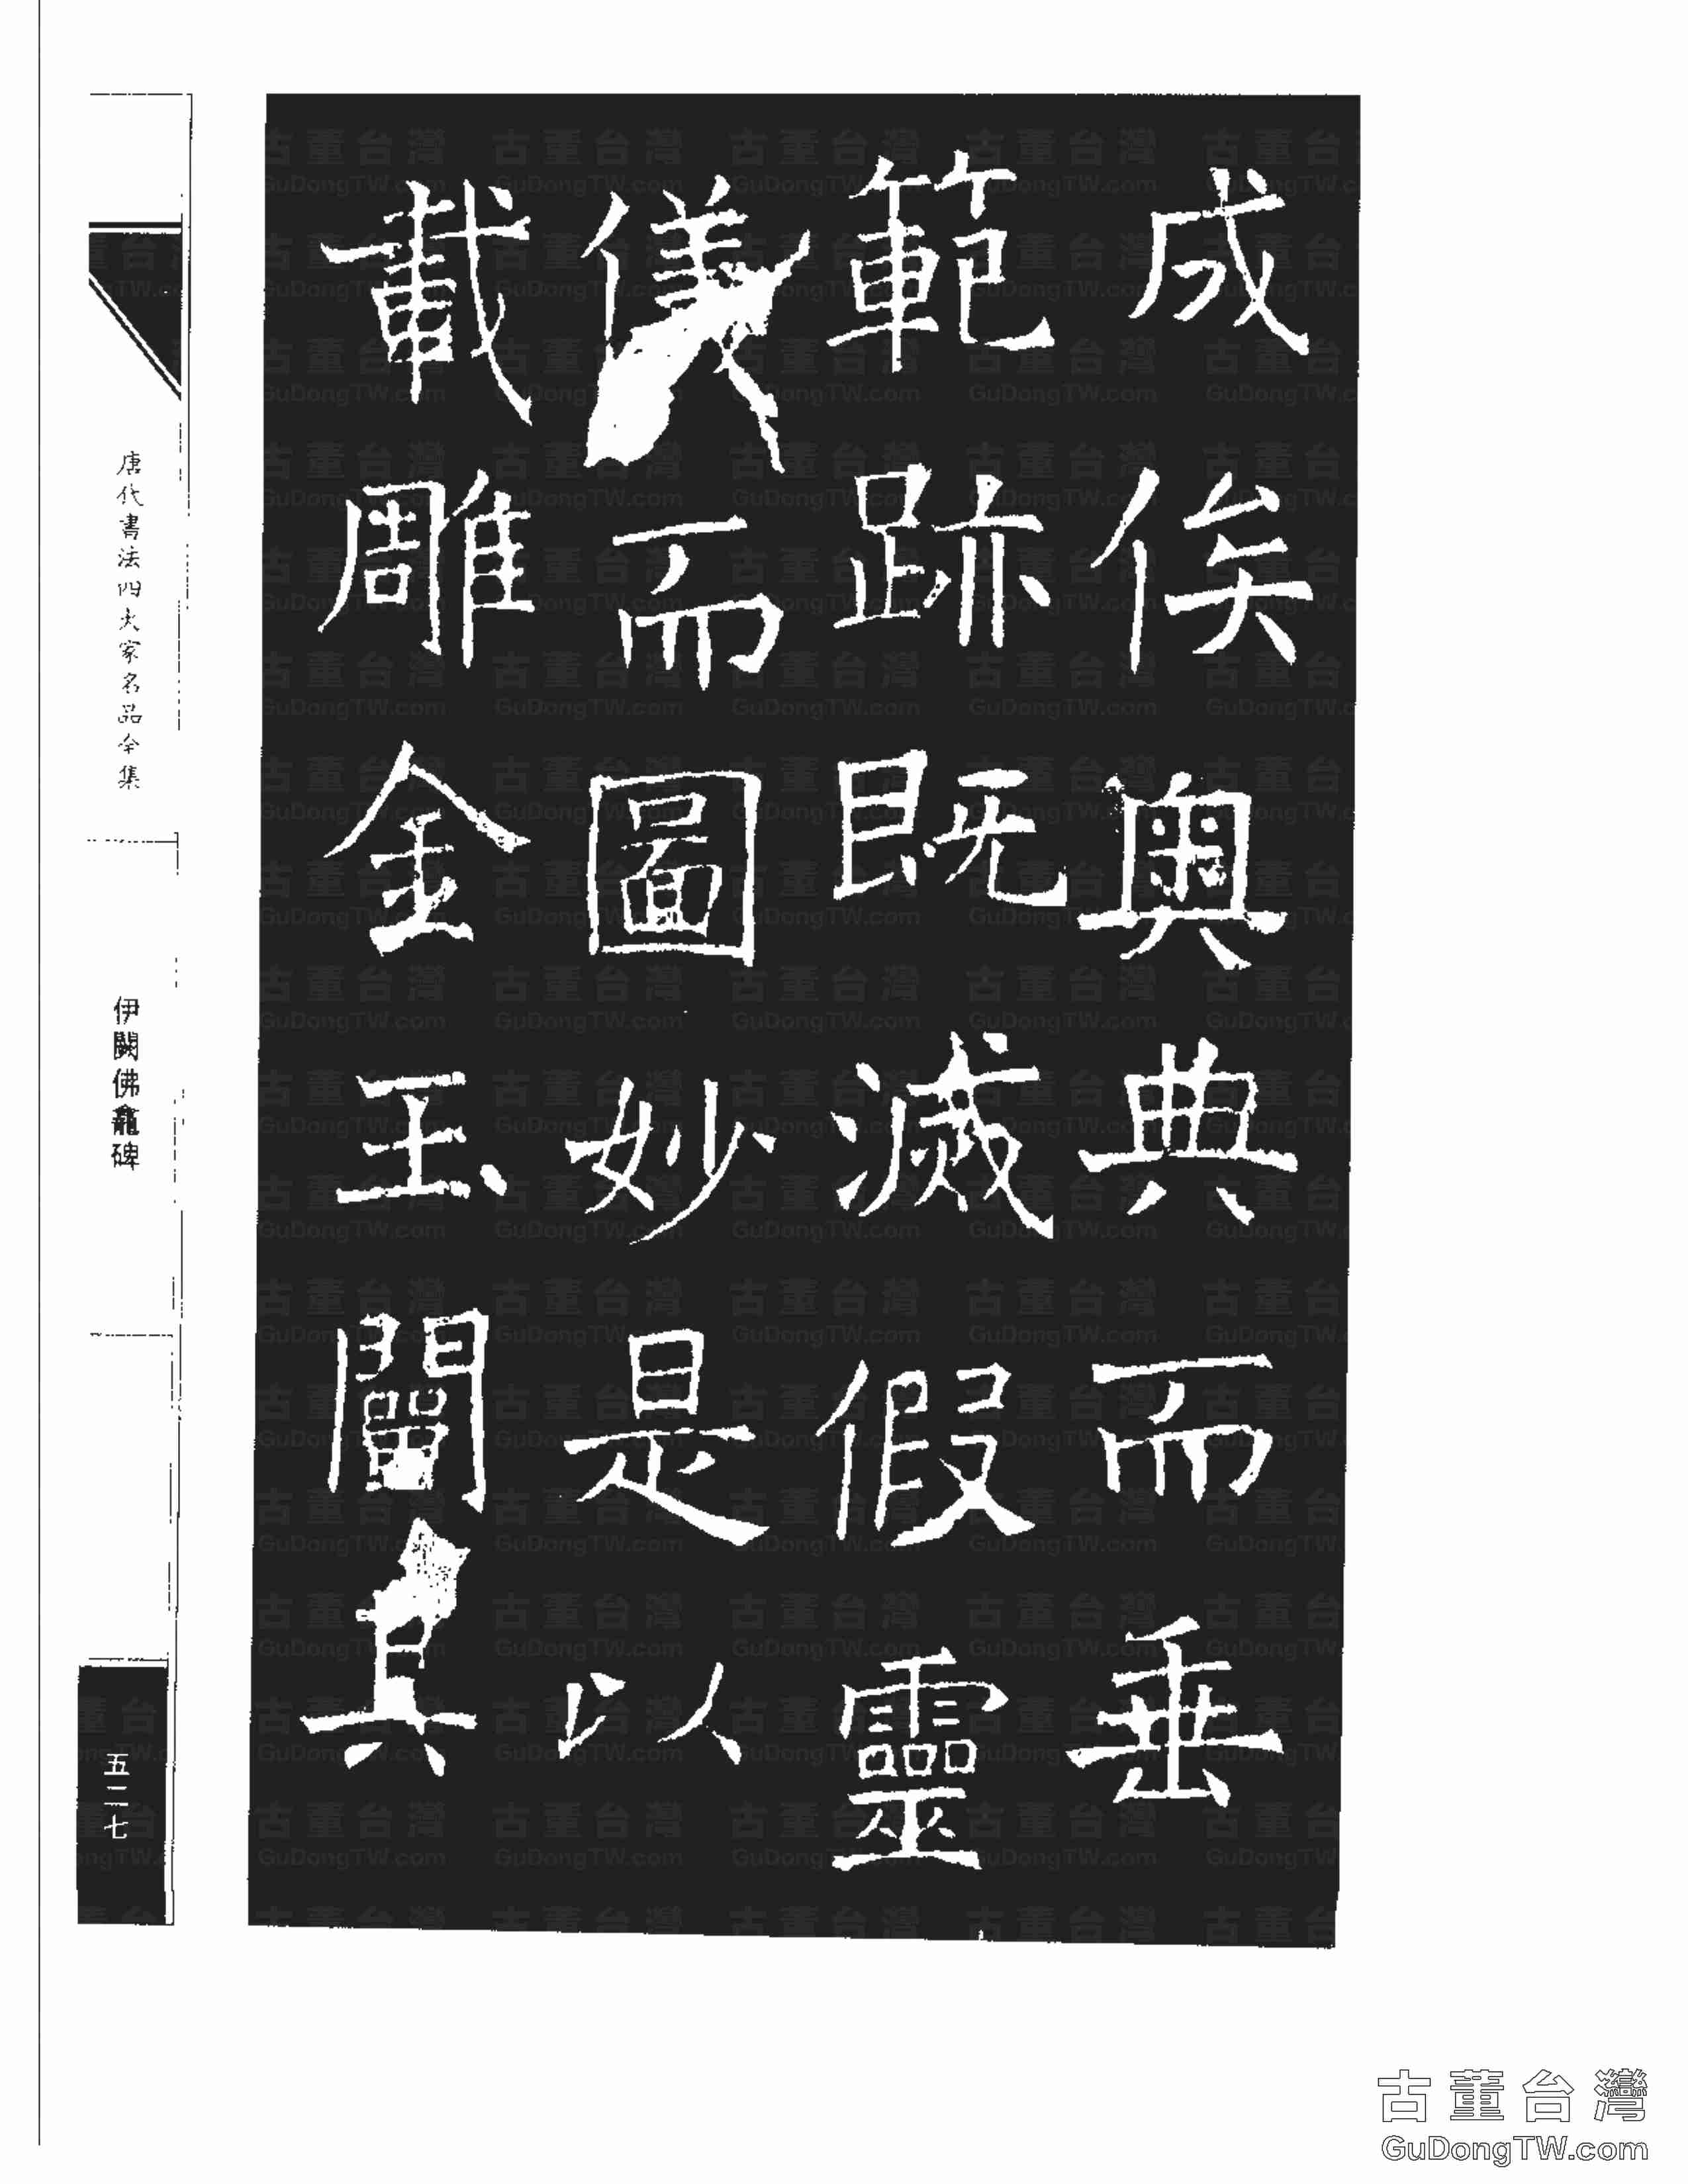 成俟奧典而垂
範跡既滅假靈
儀而圖妙是以
載雕金玉闡其
唐代書法四大家名品全集
伊闕佛龕碑
五二七
古董台灣
GuDongTW.com